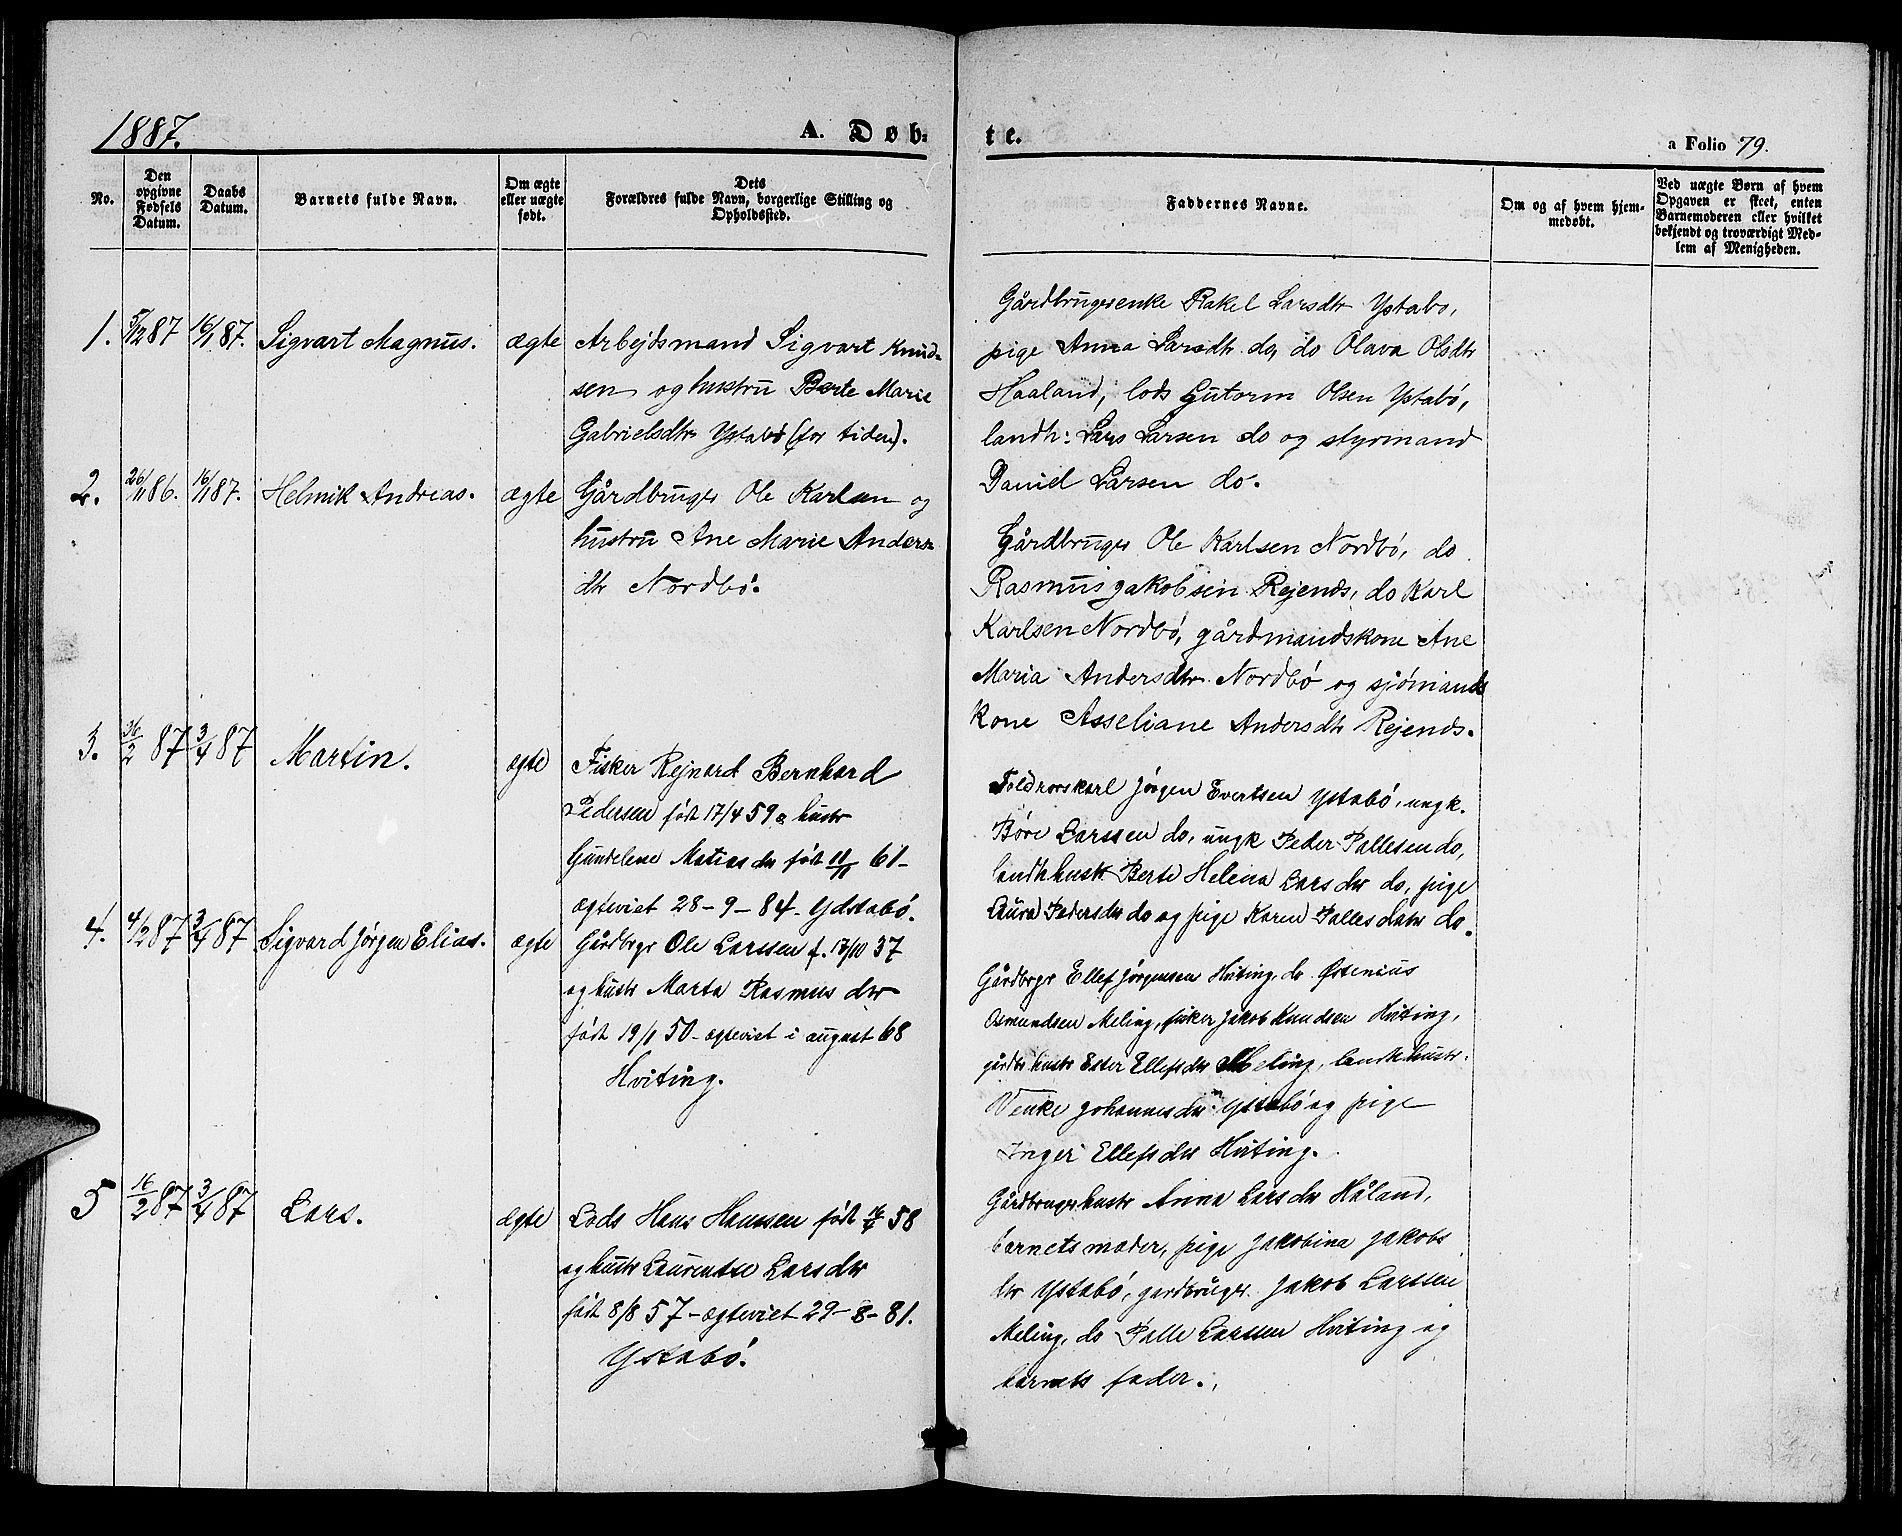 1887.
A. Døb-
te.
a Folio 79.
No.
Den opgivne Fødsels Datum.
Daabs Datum.
Barnets fulde Navn.
Om ægte eller uægte født.
Dets Forældres fulde Navn, borgerlige Stilling og Opholdssted.
Faddernes Navne.
Om og af hvem hjemmedøbt.
Ved uægte Børn af hvem Opgaven er skeet, enten Barnemoderen eller hvilket bekjendt og troværdigt Medlem af Menigheden.
1. 5/12 87 16/1 87. Sigvart Magnus. ægte
Arbejdsmand Sigvart Knud-
sen og hustru Berte Marie
Gabrielsdtr Ystabø (for tiden).
Gårdbrugerenke Rakel Larsdtr Ystabø,
pige Anna Larsdtr do, do Olava Olsdtr
Haaland, lods Gutorm Olsen Ystabø,
landh: Lars Larsen do og styrmand
Daniel Larsen do.
2. 26/11 86. 16/1 87. Helmik Andreas. ægte
Gårdbruger Ole Karlsen og
hustru Ane Marie Anders-
dtr Nordbø.
Gårdbruger Ole Karlsen Nordbø, do
Rasmus Jakobsen Rejends, do Karl
Karlsen Nordbø, gårdmandskone Ane
Maria Andersdtr Nordbø og sjømands
kone Asseliane Andersdtr Rejends.
3. /2 87 3/4 87 Martin. ægte
Fisker Rejnard Bernhard
Pedersen født 17/4 59 o hustr
Gundelene Matias dtr født 11/11 61 -
ægteviet 28-9-84- Ydstabø.
Toldrorskarl Jørgen Evertsen Ystabø, ungk.
Børe Larssen do, ungk Peder Pallesen do,
landhhustr Berte Helena Lars dtr do, pige
Laura Pedersdtr do og pige Karen Palles datr do.
4. 4/2 87 3/4 87 Sigvard Jørgen Elias. ægte
Gårdbrgr Ole Larssen f. 17/10 37
og hustr Marta Rasmus dtr
født 19/1 50 - ægteviet i august 68
Hviting.
Gårdbrgr Ellef Jørgensen Hviting, do Østenius
Osmundsen Meling, fisker Jakob Knudsen Hviting,
gårdbr hustr Ester Ellefs dtr Meling, landh hustr.
Venke Johannes dtr Ystabø og pige
Inger Ellefs dtr Hviting.
5 16/2 87 3/4 87 Lars. ægte
Lods Hans Hanssen født 58
og hustr Laurentse Lars dtr
født 8/8 57 - ægteviet 29-8-81.
Ystabø.
Gårdbruger hustr Anna Lars dtr Håland,
barnets moder, pige Jakobina Jakobs
dtr Ystabø, gardbruger Jakob Larssen
Meling, do Palle Larssen Hviting og
barnets fader.